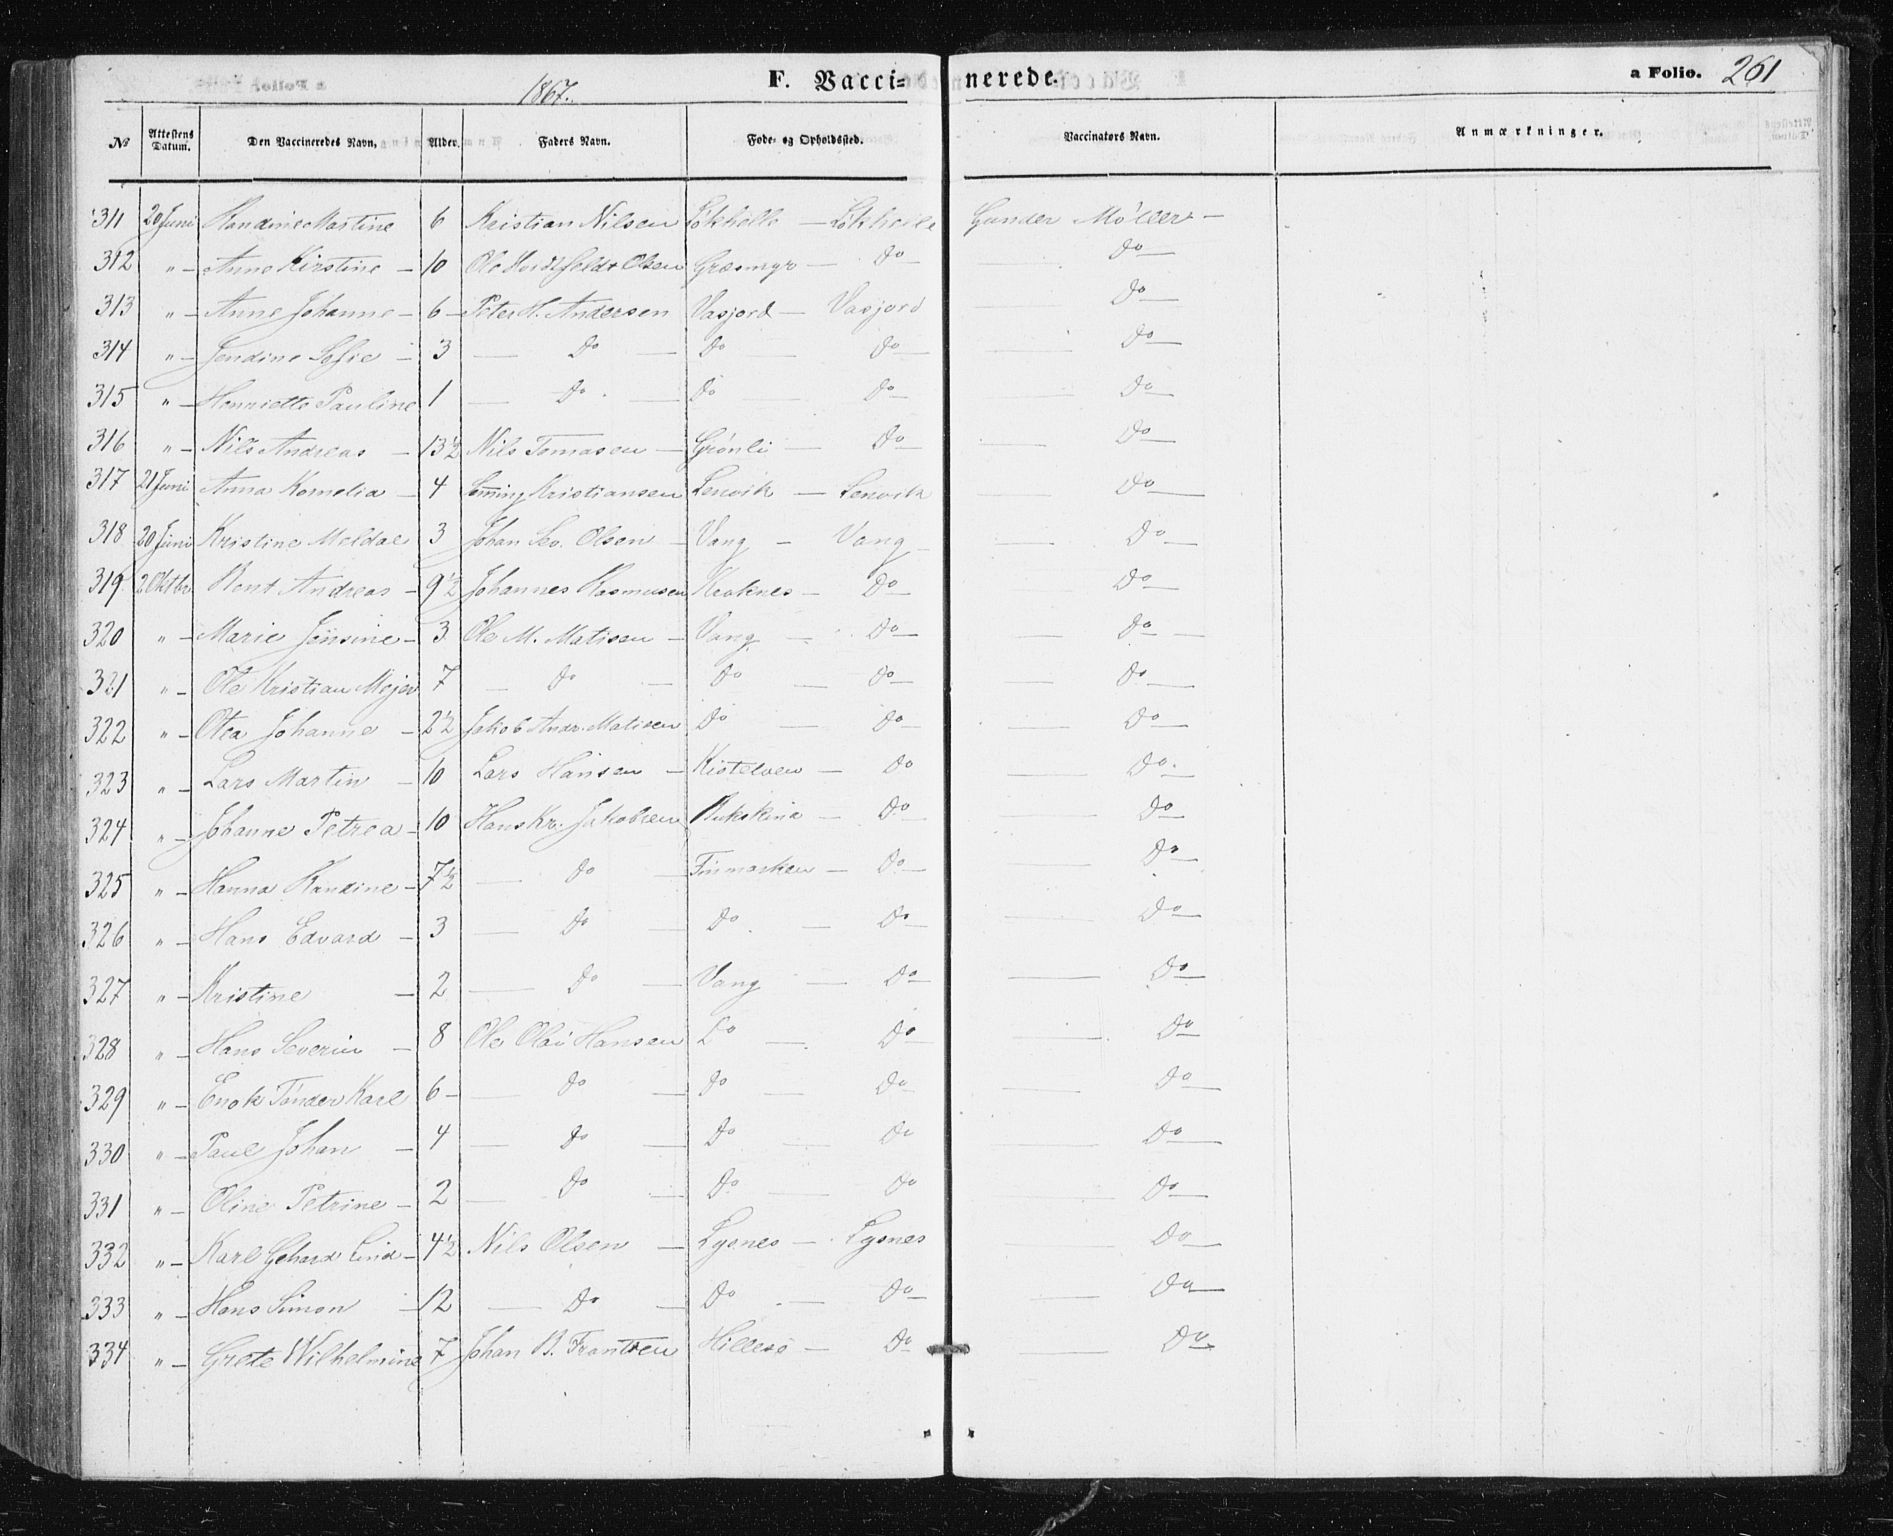 1867. F. Vacci- nerede. a Folio. 261
No Attestens Datum. Den Vaccineredes Navn. Alder. Faders Navn. Føde- og Opholdssted. Vaccinators Navn. Anmærkninger.
311 20 Juni Handine Martine 6 Kristian Nilsen Løkhelle — Løkhelle Gunder Møller —
312 " — Anne Kirstine — 10 Ole Olsen Græsmyr — Do — Do —
313 " — Anne Johanne — 6 — Peter H. Andersen Vasjord — Vasjord — Do —
314 " — Jendine Sofie — 3 — Do — Do — Do — — Do —
315 " — Henriette Pauline 1 — Do. — Do — Do — — Do —
316 " — Nils Andreas — 13½ Nils Tomasen — Grønli — Do — — Do —
317 21 Juni Anna Kornelia — 4 Kristiansen Lenvik — Lenvik — Do —
318 20 Juni Kristine Meldal 3 Johan Sev. Olsen — Vang — Vang — — Do —
319 2 Oktbr Bent Andreas — 9½ Johannes Rasmusen Kroknes — Do — — Do —
320 " — Marie Jensine — 3 Ole M. Matisen — Vang — Do — — Do —
321 " — Ole Kristian Mejer 7 — Do — Do — Do — — Do —
322 " — Otea Johanne — 2½ Jakob Andr. Matisen Do — Do — — Do —
323 " — Lars Martin — 10 Lars Hansen — Kistelven — Do — Do —
324 " — Johanne Petrea — 10 Hans Kr. Jakobsen Bukskind — Do — — Do —
325 " — Hanna Handine — 7½ — Do — Finmarken — Do — — Do —
326 " — Hans Edvard — 3 — Do — Do. — Do — — Do —
327 " — Kristine — 2 — Do — Vang — Do — — Do —
328 " — Hans Severin — 8 Ole Olai Hansen Do — Do — — Do —
329 " — Enok Tønder Karl 6 — — Do Do — Do — — Do —
330 " — Paul Johan — 4 — Do — Do — Do — Do —
331 " — Oline Petrine — 2 — Do — Do — Do — Do —
332 " — Karl Gehard Lind — 4½ Nils Olsen — Lysnes — Lysnes — Do —
333 " — Hans Simon — 12 — Do — Do — Do — — Do —
334 " — Grete Wilhelmine 7 Johan B. Frantsen Hillesø — Do — — Do —